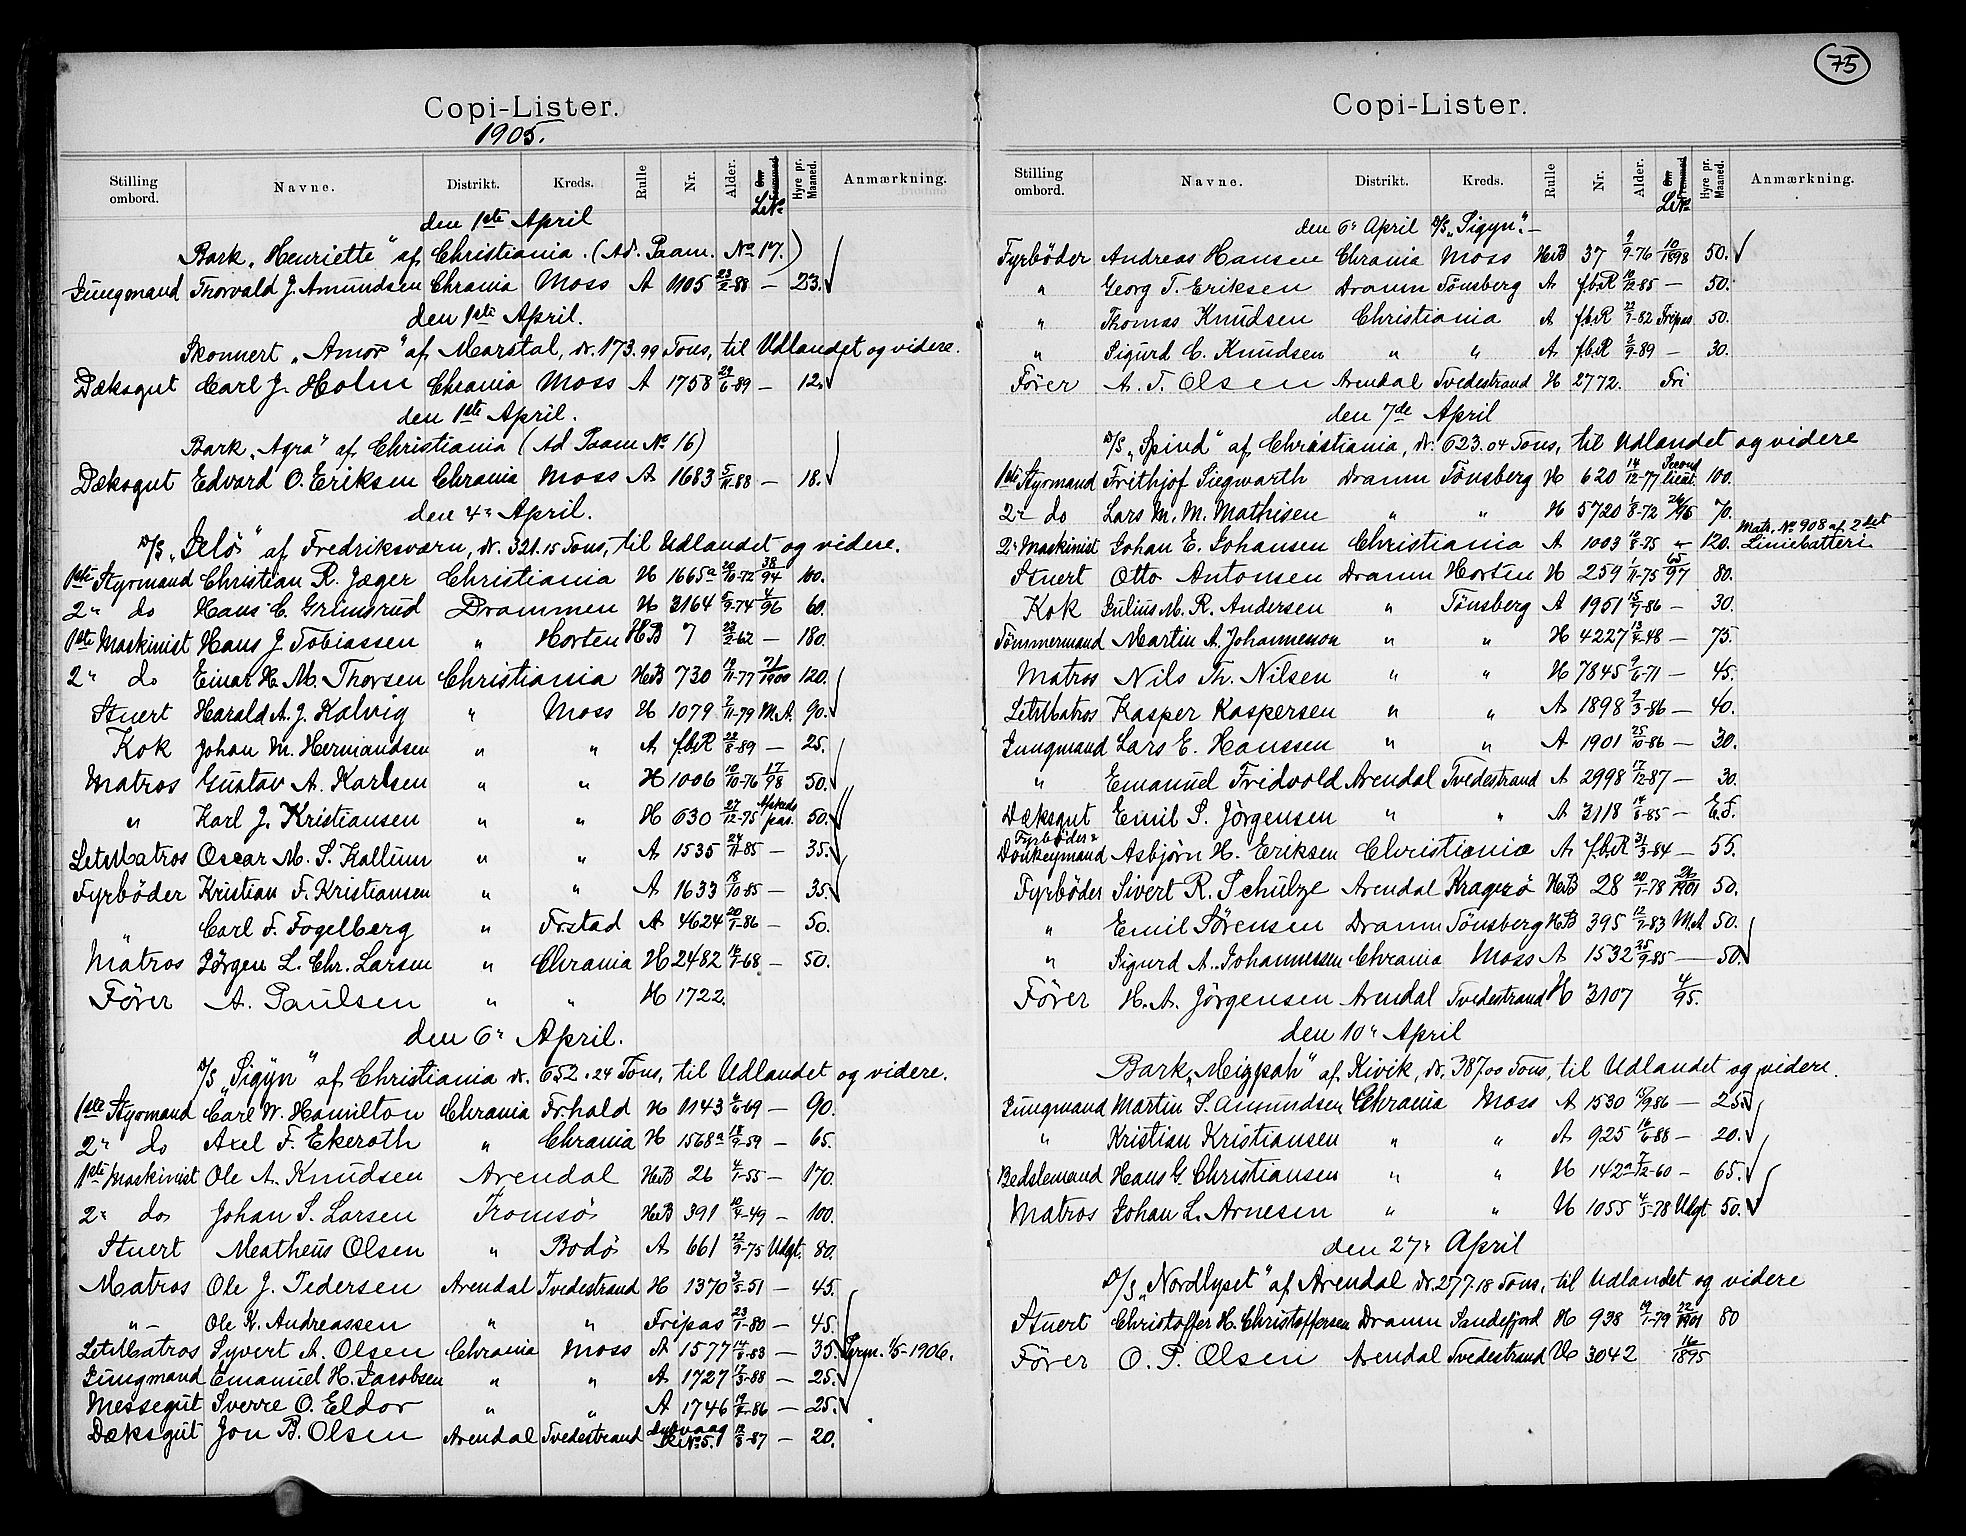 Copi-Lister.
1905.
Stilling ombord. Navne. Distrikt. Kreds. Rulle Nr. Alder. Le No Hyre pr. Maaned. Anmærkning.
den 1ste April
Bark „Henriette" af Christiania. (Ad. Paam. No 17.)
Jungmand Thorvald J. Amundsen Chrania Moss A 1105 23/2-88 — 23.
den 1ste April.
Skonnert „Amor" af Marstal, dr. 173.99 Tons, til Udlandet og videre.
Dæksgut Carl J. Holm Chrania Moss A 1758 29/6-89 — 12.
den 1ste April.
Bark „Agra" af Christiania (Ad Paam No 16)
Dæksgut Edvard O. Eriksen Chrania Moss A 1683 5/11-88 — 18.
den 4" April.
D/S „Selö" af Fredriksværn, dr. 321.15 Tons, til Udlandet og videre.
1ste Styrmand Christian R. Jæger Christiania H 1665a 20/10-72 38/94 100.
2" do Hans C. Grimsrud Drammen H 3164 5/9-74 4/96 60.
1ste Maskinist Hans J Tobiassen " Horten HB 7 23/2-62 — 180.
2" do Einar H. M. Thorsen Christiania HB 730 19/11-77 71/1900 120.
Stuert Harald A. J. Kalvig " Moss H 1079 2/11-79 M.A. 90.
Kok Johan M. Hermandsen " " A f.b.R 22/8-89 — 25.
Matros Gustav A. Karlsen " " H 1006 10/10-76 17/98 50.
" Karl J. Kristiansen " " H 630 27/12-75 Afskeds pas. 50.
LetMatros Oscar M. S. Kallum " " A 1535 24/11-85 — 35.
Fyrböder Kristian F. Kristiansen " " A 1633 18/10-85 — 35.
" Carl F. Fogelberg " Frstad A 4624 20/1-86 — 50.
Matros Jörgen L. Chr. Larsen " Chrania H 2482 16/1-68 — 50.
Förer A. Paulsen " " H 1722.
den 6" April.
D/S „Sigyn" af Christiania dr. 652.24 Tons, til Udlandet og videre.
1ste Styrmand Carl W. Hamilton Chrania Fr.hald H 1143 6/6-69 — 90.
2" do Axel F. Ekeroth " Chrania H 1568a 18/9-59 — 65.
1ste Maskinist Ole A. Knudsen Arendal HB 26 4/1-55 — 170.
2" do Johan S. Larsen Tromsö HB 391 10/4-49 — 100.
Stuert Matheus Olsen " Bodö A 661 22/9-75 Udgt. 80.
Matros Ole J. Pedersen Arendal Tvedestrand H 1370 3/5-51 — 45.
" - Ole K. Andreassen " " Fripas 23/1-80 — 45.
LetMatros Syvert A. Olsen Chrania Moss A 1577 14/8-83 — 35. Perm. 1/5-1906.
Jungmand Emanuel H. Jacobsen " " A 1727 17/3-88 — 25.
Messegut Sverre O. Eldor " " A 1746 19/8-86 — 25.
Dæksgut Jon B. Olsen Arendal Tvedestrand Dybvaag No 5. 12/8-87 — 20.
75
Copi-Lister.
Stilling ombord. Navne. Distrikt. Kreds. Rulle Nr. Alder. Le No Hyre pr. Maaned. Anmærkning.
den 6" April D/S „Sigyn". —
Fyrböder Andreas Hansen Chrania Moss HB 37 9/9-76 10/1898 50.
" Georg T. Eriksen Dramm Tönsberg A f.b.R 10/12-85 — 50.
" Thomas Knudsen Christiania A f.b.R 22/1-82 Fripas 50.
" Sigurd C. Knudsen " " A f.b.R 2/9-89 — 30.
Förer A. T. Olsen Arendal Tvedestrand H 2772. Fri
den 7de April
D/S „Spind" af Christiania, dr. 623.04 Tons, til Udlandet og videre
1ste Styrmand Frithjof Siegwarth Dramm Tönsberg H 620 14/12-77 Secondlieut. 100.
2" do Lars M. M. Mathisen " " H 5720 1/8-72 26/96 70.
2" Maskinist Johan E. Johansen Christiania A 1003 10/8-75 " 120. Matr. No 908 af 2det Liniebatteri
Stuert Otto Antonsen Dramm Horten H 259 1/11-75 65/97 80.
Kok Julius M. R. Andersen " Tönsberg A 1951 15/7-86 — 30.
Tömmermand Martin A. Johannesson " " H 4227 13/4-48 — 75.
Matros Nils Th. Nilsen " " H 7845 9/6-71 — 45.
LetMatros Kasper Kaspersen " " A 1898 2/3-86 — 40.
Jungmand Lars E. Hanssen " " A 1901 25/10-86 — 30.
" Emanuel Fridvold Arendal Tvedestrand A 2998 17/12-87 — 30.
Dæksgut Emil S. Jörgensen " " A 3118 14/8-85 — E.F.
Fyrböder & Donkeymand Asbjörn H. Eriksen Christiania A f.b.R 31/3-84 — 55.
Fyrböder Sivert R. Schulze Arendal Kragerö HB 28 20/1-78 26/1901 50.
" Emil Sörensen Dramm Tönsberg HB 395 12/7-83 M.A 50.
" Sigurd A. Johannessen Chrania Moss A 1532 25/9-85 — 50.
Förer H. A. Jörgensen Arendal Tvedestrand H 3107 4/95.
den 10" April
Bark „Mizpah" af Kivik, dr. 387.00 Tons, til Udlandet og videre.
Jungmand Martin S. Amundsen Chrania Moss A 1530 19/9-86 — 25.
" Kristian Kristiansen " " A 925 16/6-88 — 20.
Bedstemand Hans G. Christiansen " " H 142a 7/12-60 — 65.
Matros Johan L. Arnesen " " H 1055 4/5-78 Udgt 50.
den 27" April
D/S „Nordlyset" af Arendal dr. 277.18 Tons, til Udlandet og videre
Stuert Christoffer H. Christoffersen Dramm Sandefjord H 938 19/1-79 22/1901 80
Förer O. P. Olsen Arendal Tvedestrand H 3042 16/1895